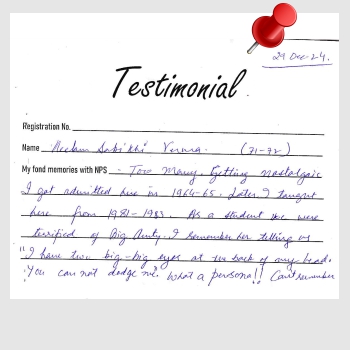 29 Dec - 24.
Testimonial
Registration No.
Name Neelam Sabikhi Verma. (71-72)
My fond memories with NPS - Too Many. Getting nostalgic
I got admitted here in 1964-65. Later I taught
here from 1981-1983. As a student we were
terrified of Big Aunty. I remember her telling us
"I have two big-big eyes at the back of my head.
You can not dodge me. What a persona!! Can't remember